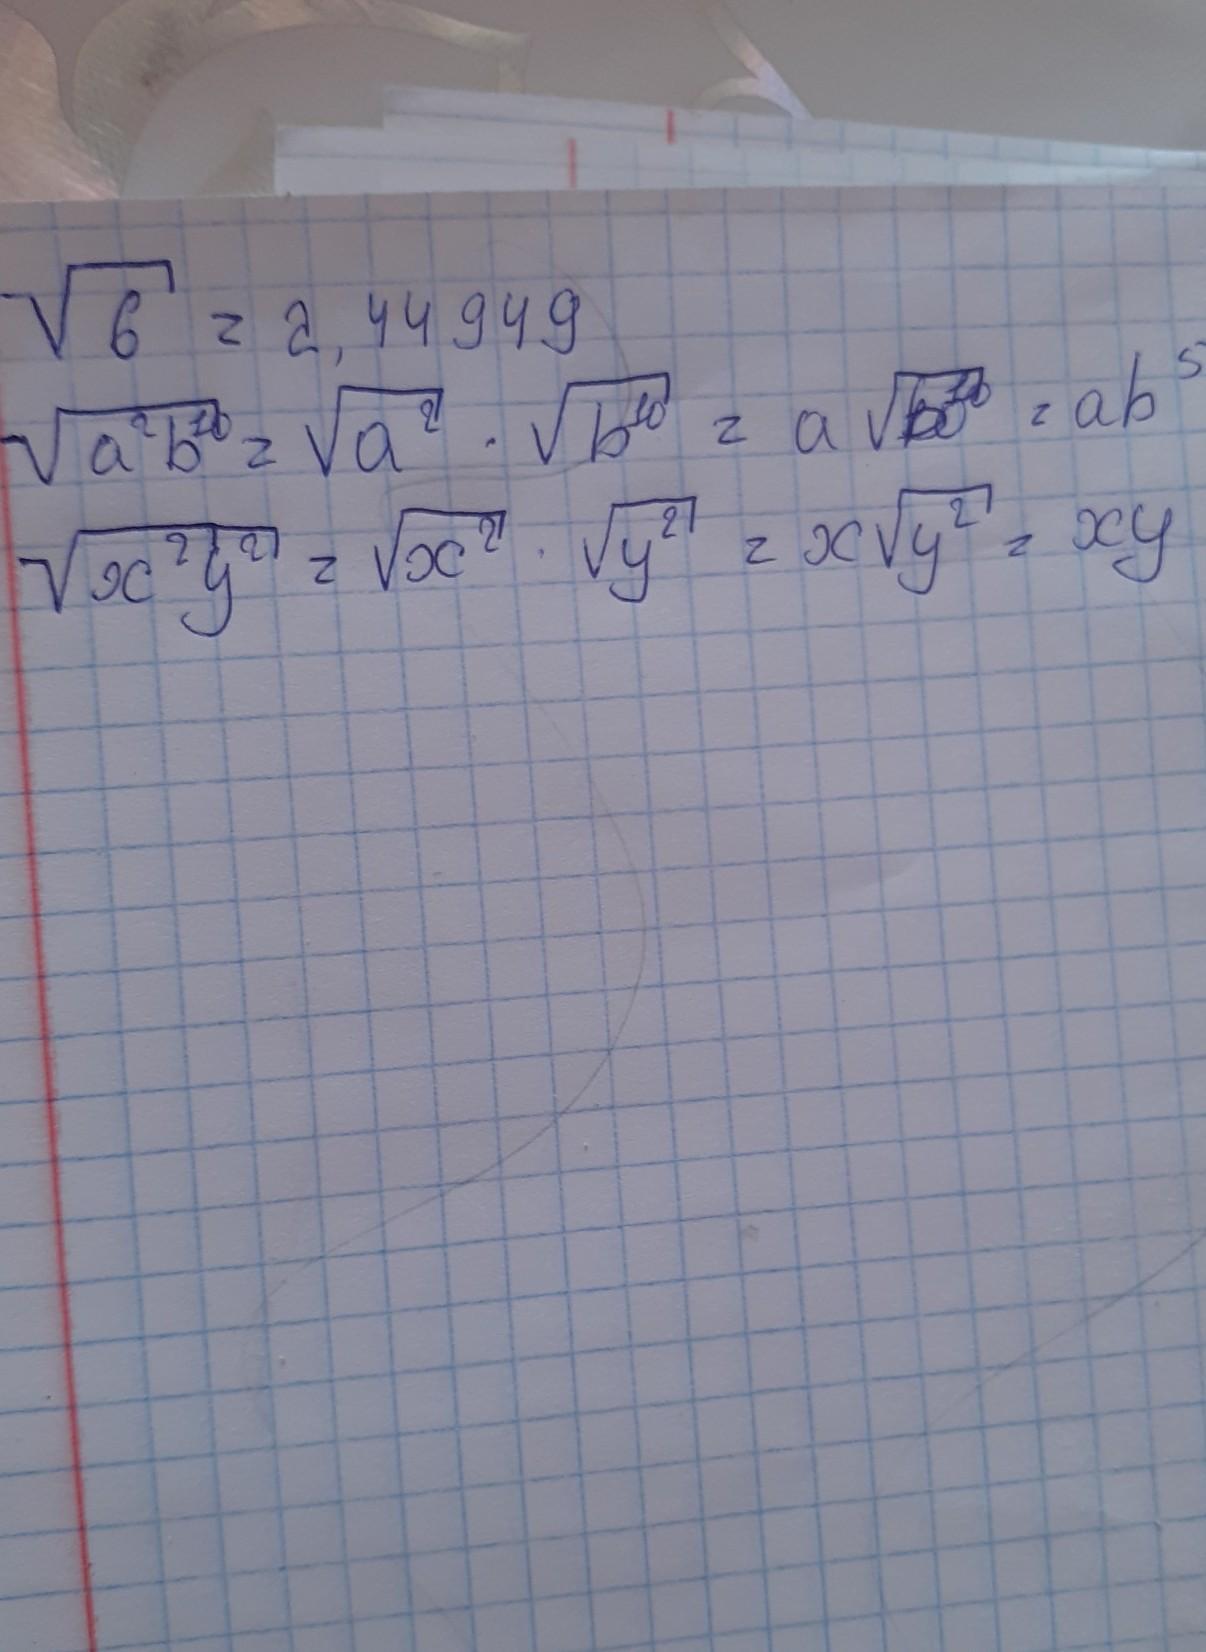 √6 = 2,44949
√a²b¹⁰ = √a² · √b¹⁰ = a√b¹⁰ = ab⁵
√x²y² = √x² · √y² = x√y² = xy